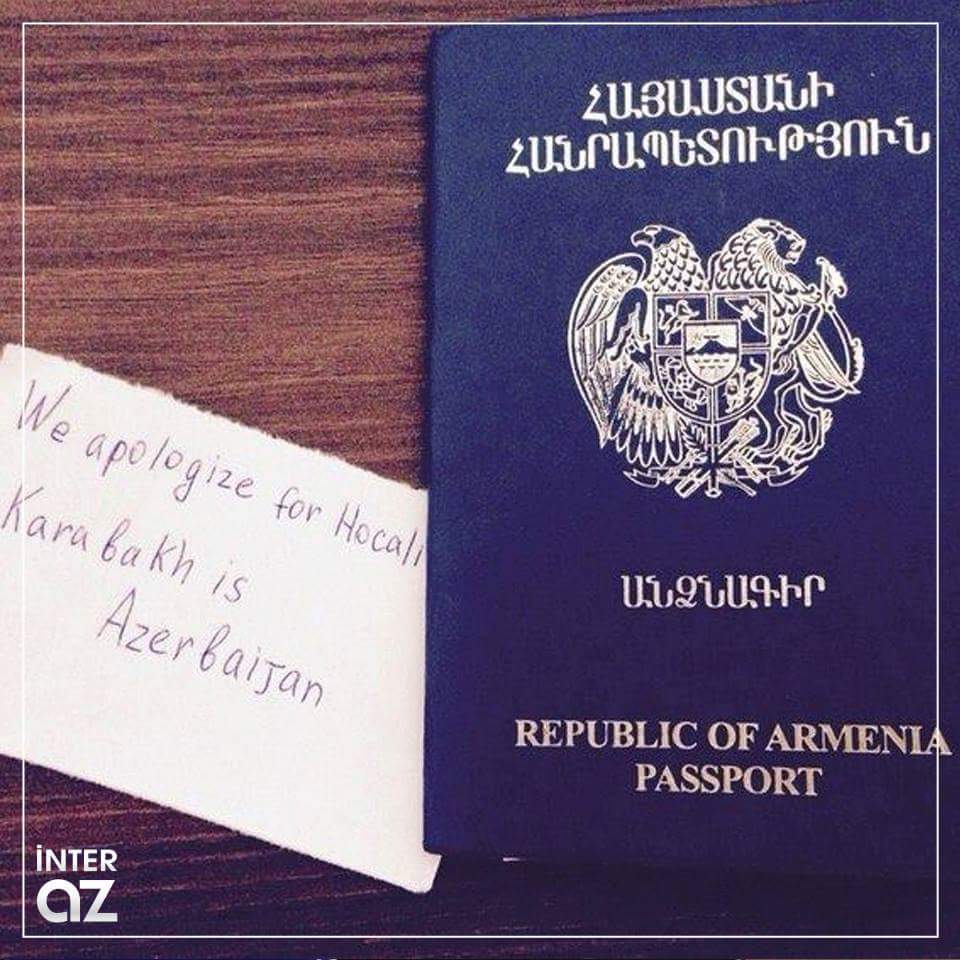 ՀԱՅԱՍՏԱՆԻ
ՀԱՆՐԱՊԵՏՈՒԹՅՈՒՆ
ԱՆՁՆԱԳԻՐ
REPUBLIC OF ARMENIA
PASSPORT
We apologize for Hocali
Karabakh is
Azerbaijan
İNTER
az